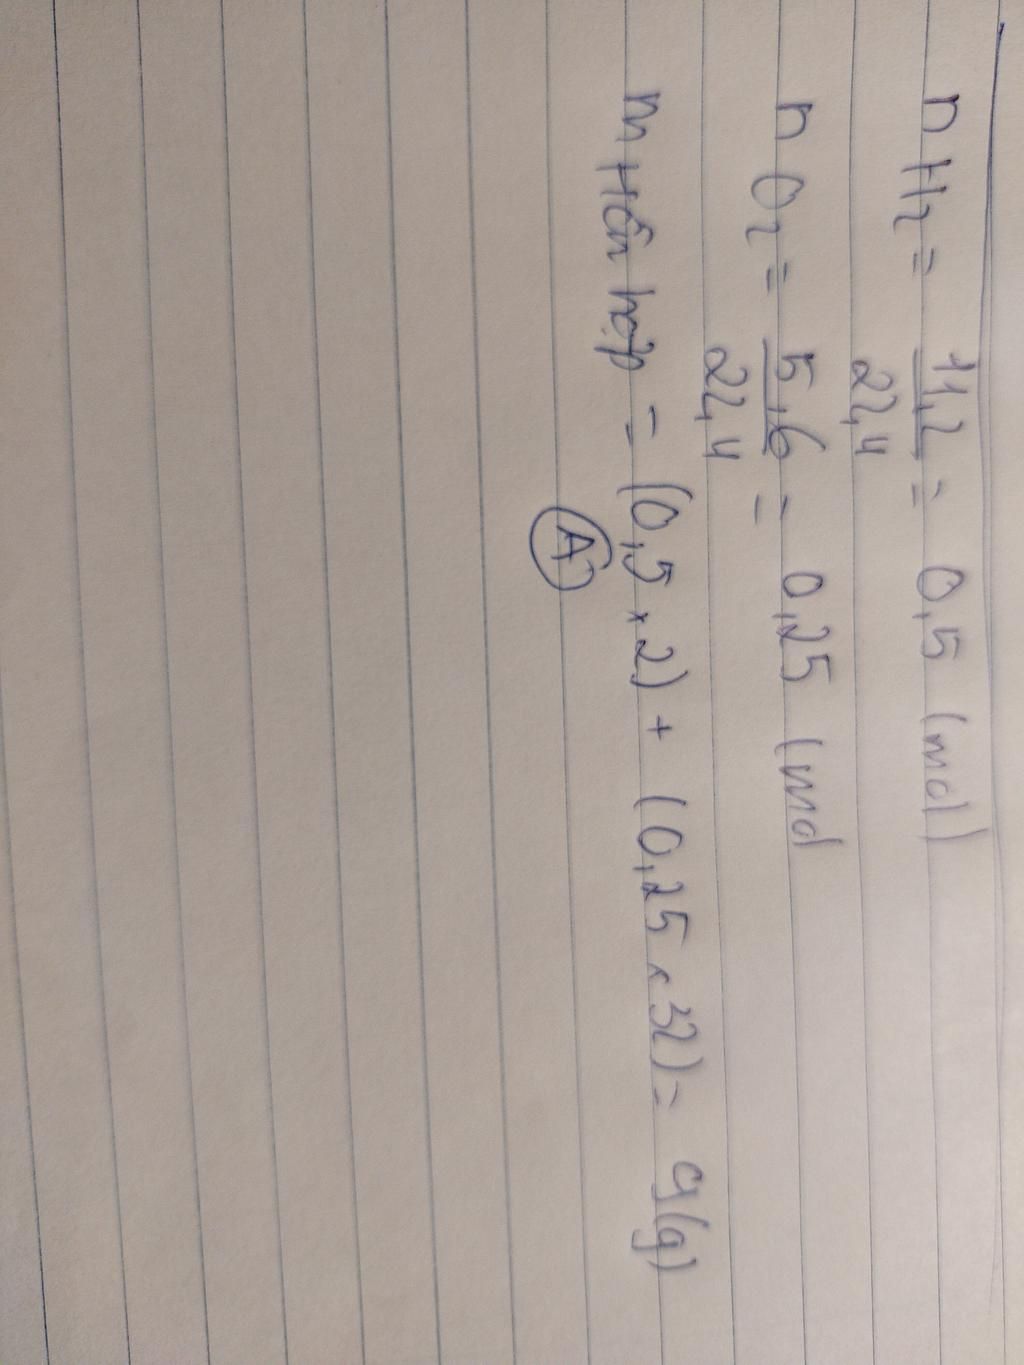 n H2 = 11,2 = 0,5 (mol)
22,4
n O2 = 5,6 = 0,25 (mol
22,4
m Hỗn hợp = (0,5 x 2) + (0,25 x 32) = 9(g)
A